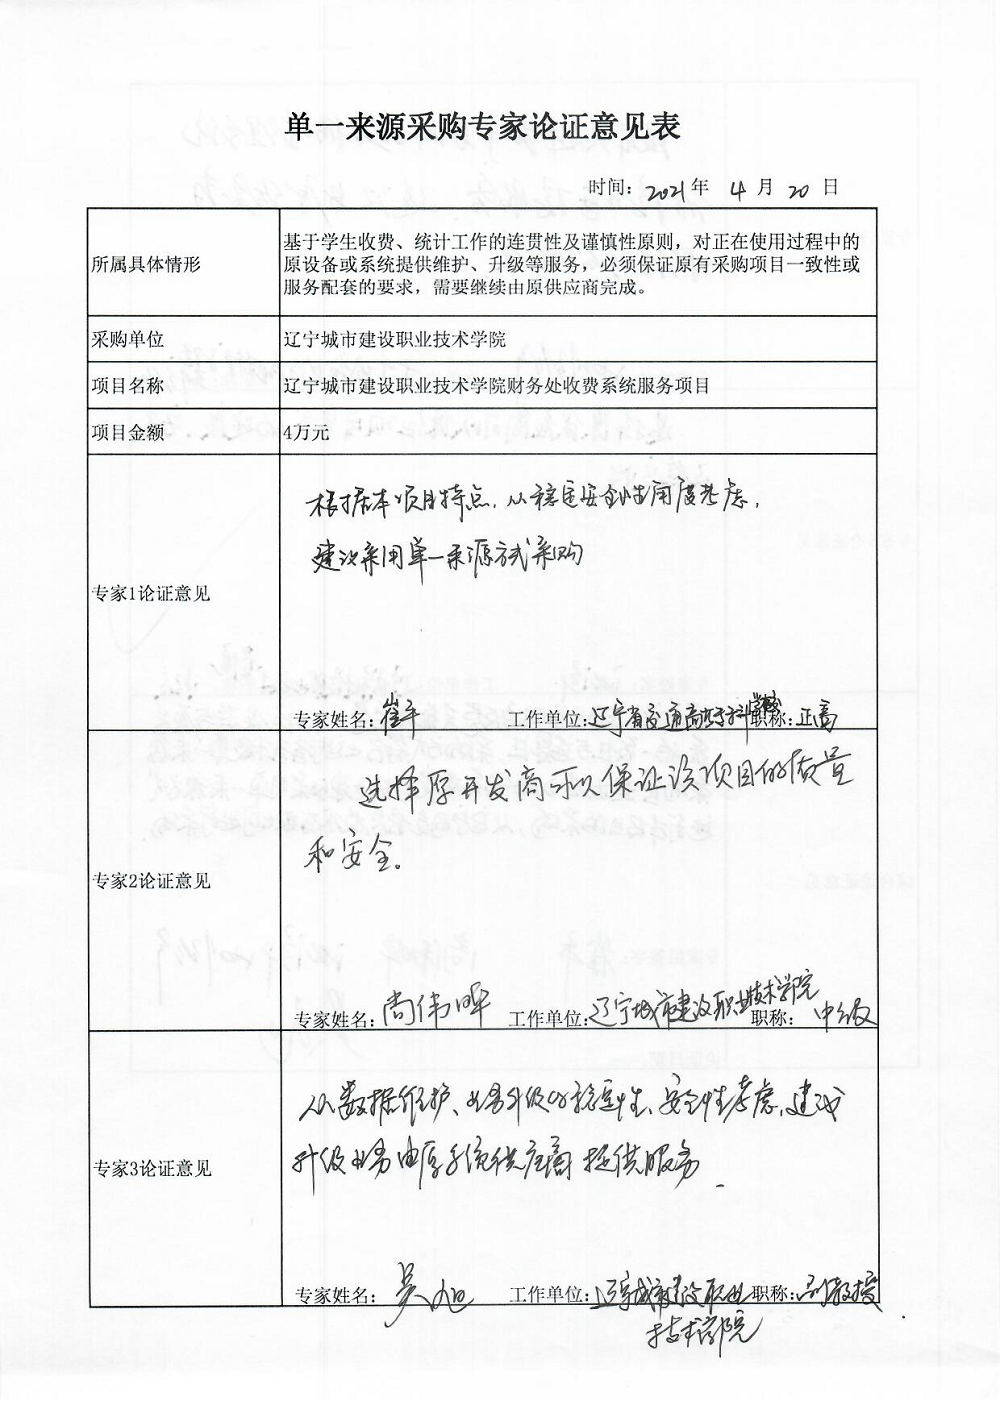 单一来源采购专家论证意见表
时间：2021年 4 月 20 日
所属具体情形
基于学生收费、统计工作的连贯性及谨慎性原则，对正在使用过程中的
原设备或系统提供维护、升级等服务，必须保证原有采购项目一致性或
服务配套的要求，需要继续由原供应商完成。
采购单位
辽宁城市建设职业技术学院
项目名称
辽宁城市建设职业技术学院财务处收费系统服务项目
项目金额
4万元
专家1论证意见
根据本项目特点，从稳定安全性角度考虑，
建议采用单一来源方式采购
专家姓名：崔平 工作单位：辽宁省交通高等专科学校 职称：正高
专家2论证意见
选择原开发商可以保证该项目的质量
和安全。
专家姓名：尚伟晖 工作单位：辽宁城市建设职业技术学院 职称：中级
专家3论证意见
从数据维护、业务升级的稳定性、安全性考虑，建议
升级业务由原系统供应商提供服务
专家姓名：吴旭 工作单位：辽宁城市建设职业 职称：副教授
技术学院